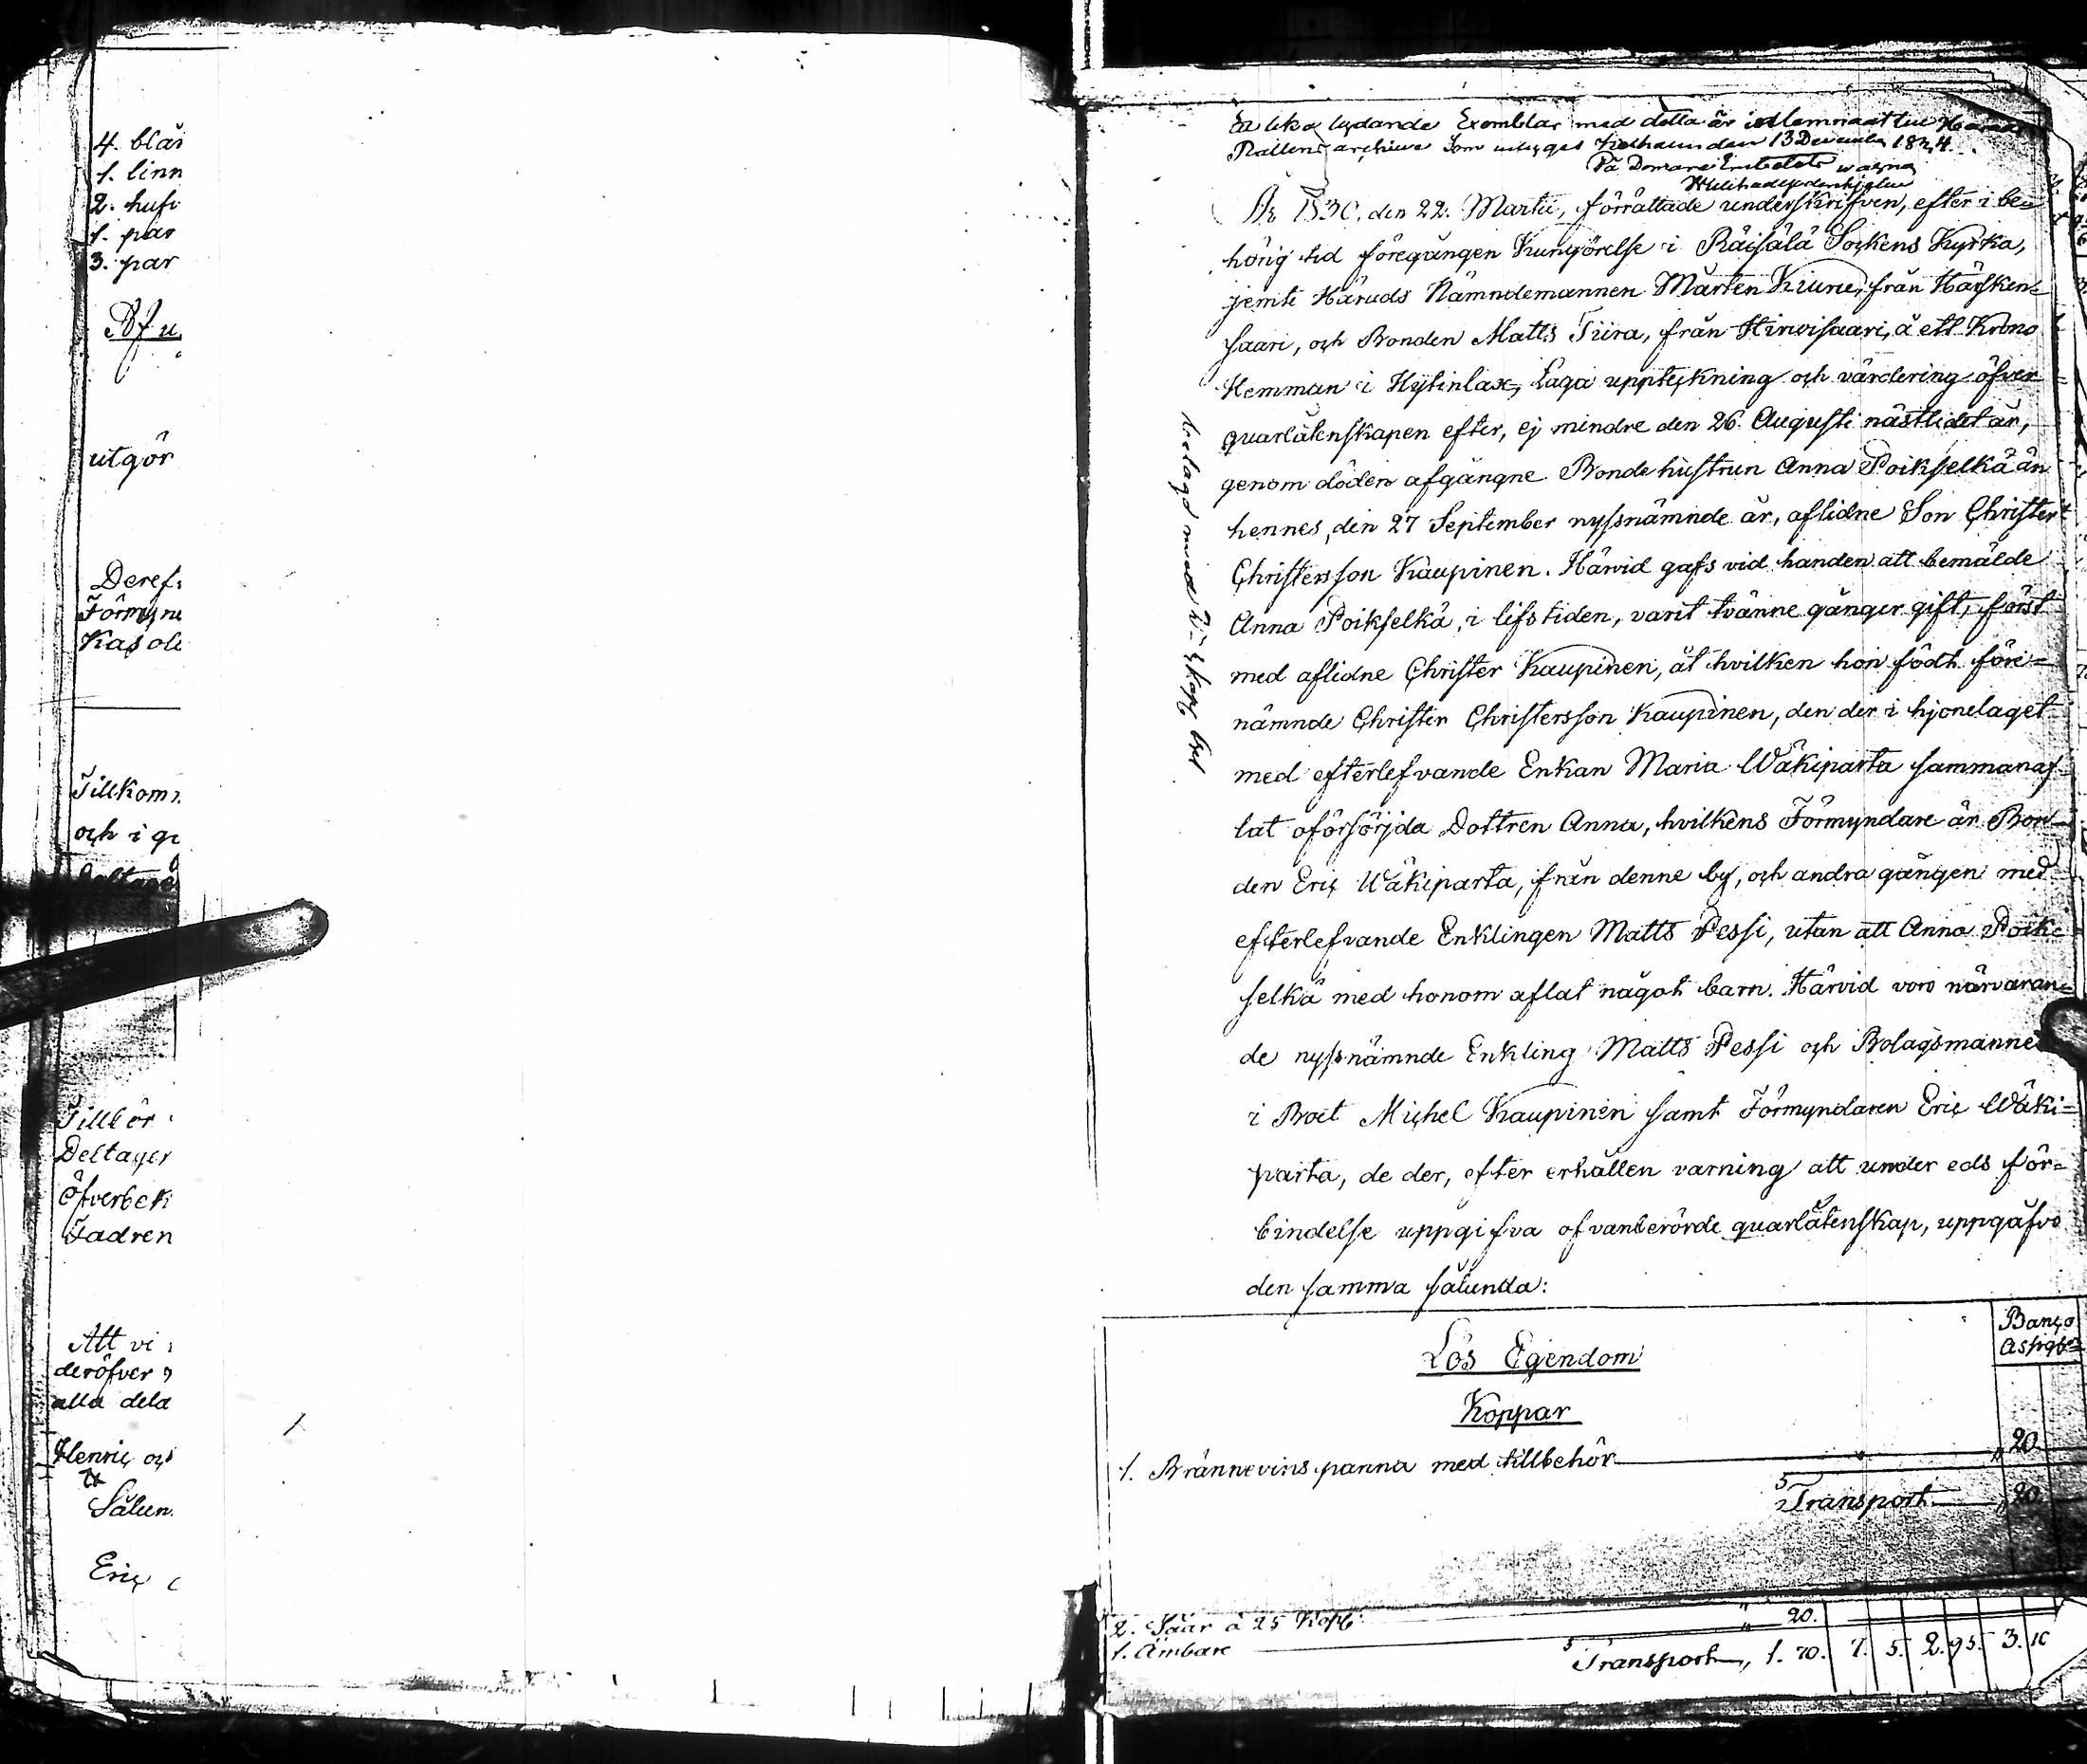 4. blår
1. linn
2. hufv
1. par
3. par
Af u
utgör
Deref
Förmyn
Tillkom
och i
Tillbör
Deltager
Öfverbek
Fadren
Att vi
deröfver
alla dela
Henriç och
Sålun
Eriç
lika lydande Exemplar med detta är
archive Som den 13 December 1834.
På Domare Embetets vägna
År 1830, den 22. Martii, förrättade underskrifven, efter i be=
hörig tid föregången Kungörelse i Räisälä Sockens Kyrka,
jemte Härads Nämndemannen Mårten Kiuru, från Häyken=
saari, och Bonden Matts Tiira, från Hirvisaari, å ett Krono
Hemman i Hytinlax, Laga uppteckning och värdering öfver
quarlåtenskapen efter, ej mindre den 26. Augusti nästlidet år,
genom döden afgångne Bondehustrun Anna Poikselkä än
hennes, den 27 September nyssnämnde år, aflidne Son Christer
Christersson Kaupinen. Härvid gafs vid handen att bemälde
Anna Poikselkä, i lifstiden, varit tvänne gånger gift, först
med aflidne Christer Kaupinen, åt hvilken hon födt före=
nämnde Christer Christersson Kaupinen, den der i hjonelaget
med efterlefvande Enkan Maria Wäkiparta sammanaf=
lat oförsörjda Dottren Anna, hvilkens Förmyndare är Bon=
den Eriç Wäkiparta, från denne by, och andra gången med
efterlefvande Enklingen Matts Pessi, utan att Anna Poik=
selkä med honom aflat något barn. Härvid voro närvaran=
de nyssnämnde Enkling Matts Pessi och Bolagsmannen
i Boet Michel Kaupinen samt Förmyndaren Eriç Wäki=
parta, de der, efter erhållen varning att under eds för=
bindelse uppgifva ofvanberörde quarlåtenskap, uppgåfvo
den samma sålunda:
belagd med
Banco
Assign
Lös Egendom
Koppar
1. Brännevins panna med tillbehör " " 20.
Transport " 20.
2. Såar à 25 Kop
1. Ämbare " 20.
Transport " 1. 70. 7. 5. 2. 95. 3. 10